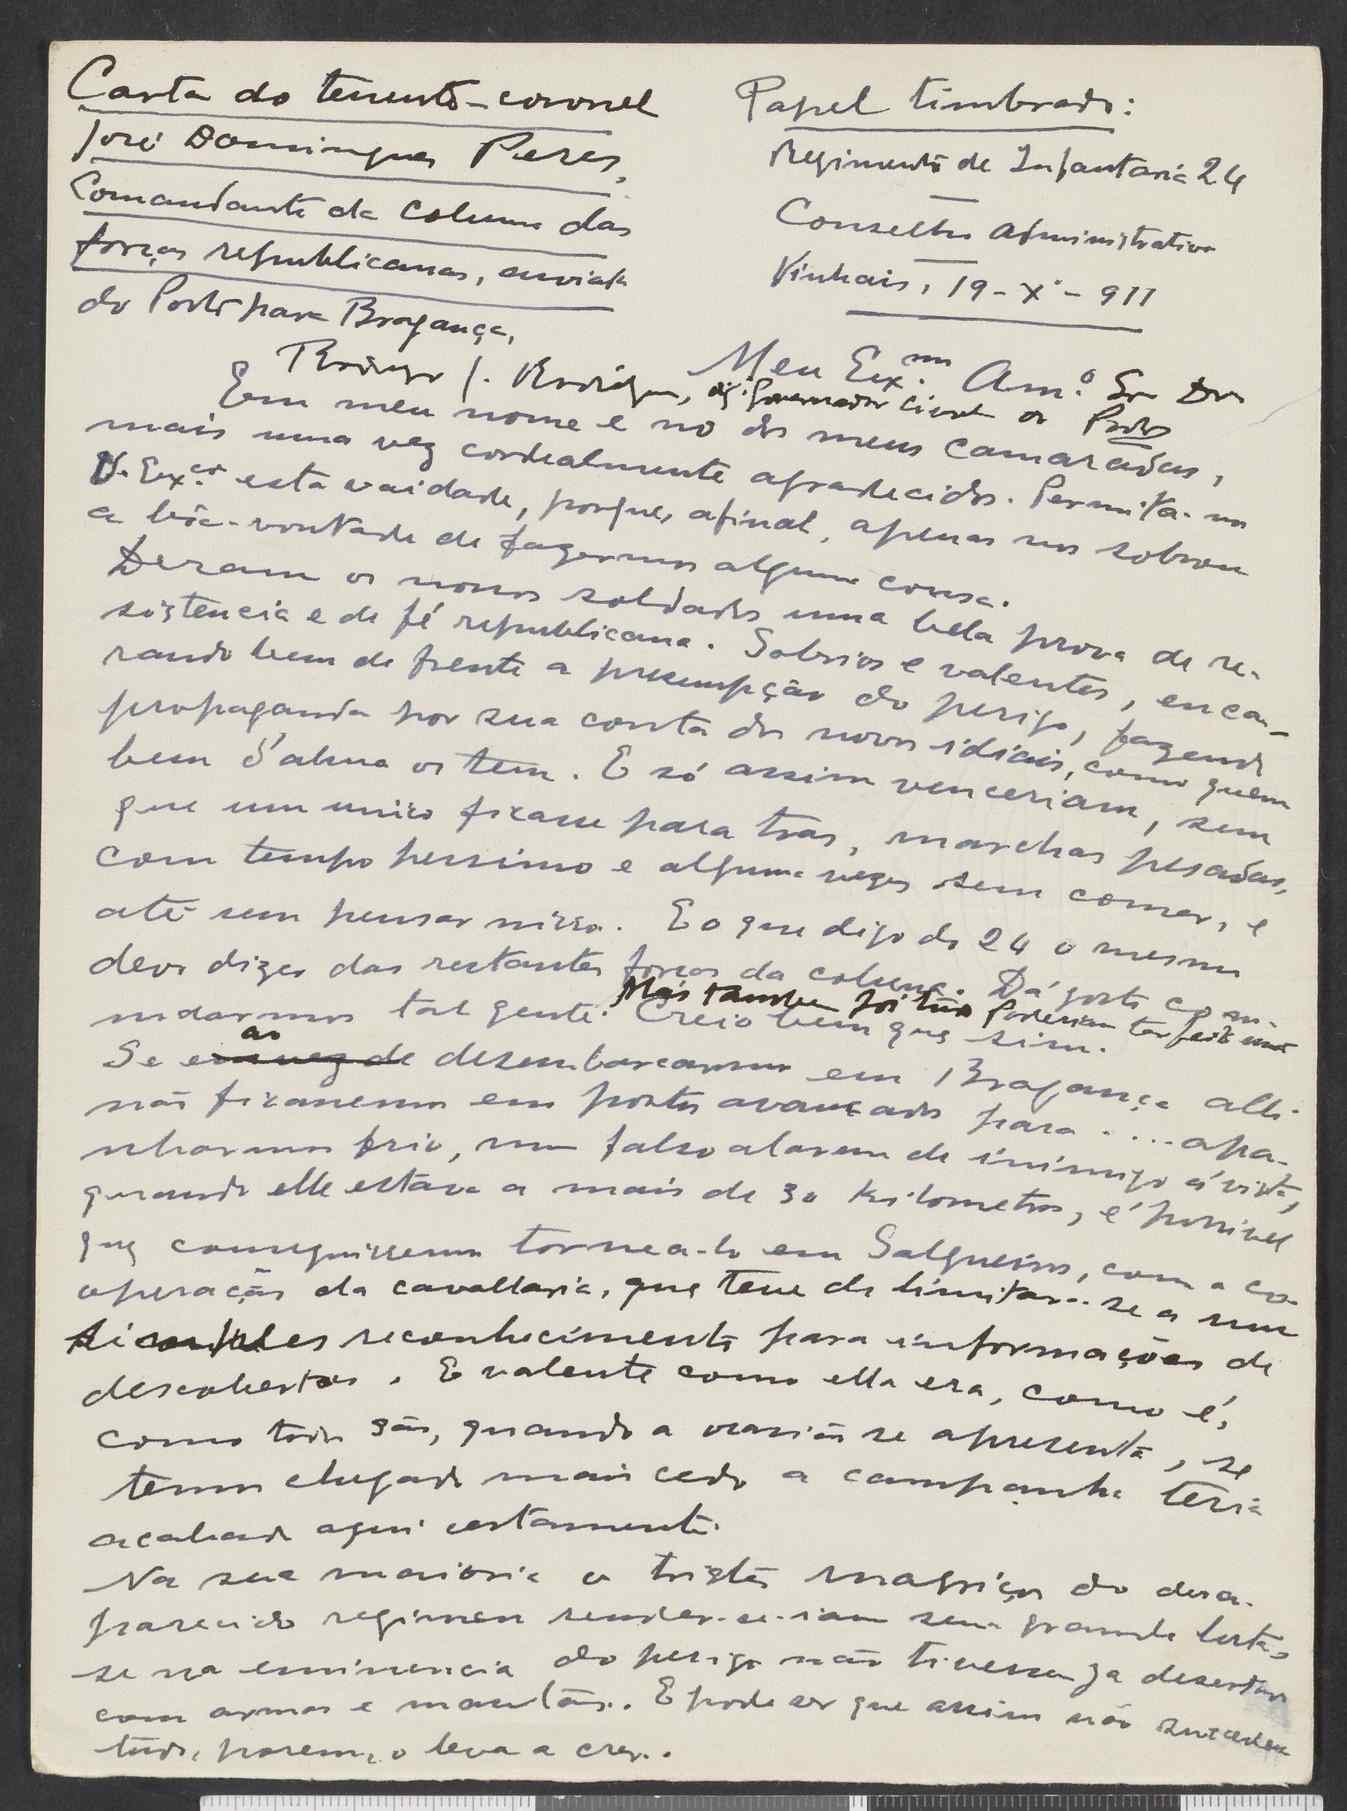 Carta do tenente-coronel
José Domingues Peres,
Comandante da coluna das
forças republicanas, enviada
do Porto para Bragança,
Papel timbrado:
Regimento de Infantaria 24
Conselho Administrativo
Vinhais, 19-X-911
Meu Exmo. Amo. Sr. Dr.
Rodrigo J. Rodrigues, Governador civil do Porto
Em meu nome e no dos meus camaradas,
mais uma vez cordealmente agradecidos. Permita-nos
V. Exca. esta vaidade, porque, afinal, apenas nos sobrou
a bôa-vontade de fazermos alguma cousa.
Deram os nossos soldados uma bela prova de re-
sistencia e de fé republicana. Sobrios e valentes, enca-
rando bem de frente a presumpção do perigo, fazendo
propaganda por sua conta dos novos idiais, como quem
bem d'alma os tem. E só assim venceriam, sem
que um unico ficasse para tras, marchas pesadas,
com tempo pessimo e algumas vezes sem comer, e
até sem pensar nisso. E o que digo do 24 o mesmo
devo dizer das restantes forças da coluna. Dá gosto com-
mandarmos tal gente. Creio bem que sim.
Mas tambem foi tudo Poderiam ter feito mais
Se em vez de ao desembarcarmos em Bragança alli
não ficassemos em postos avançados para .... apa-
nharmos frio, num falso alarme de inimigo á vista,
quando elle estava a mais de 30 kilometros, é possivel
que conseguissemos tornea-lo em Salgueiros, com a co-
operação da cavallaria, que teve de limitar-se a um
simples reconhecimento para informações de
descobertas. E valente como ella era, como é,
como todos são, quando a ocasião se apresenta, se
temos chegado mais cedo a campanha teria
acabado aqui certamente.
Na sua maioria os tristes magriços do desa-
parecido regimen render-se-iam sem grande lucta,
se na eminencia do perigo não tivessem já desertado
com armas e mantas. E pode ser que assim não suceda
tudo, porem, o leva a crer.